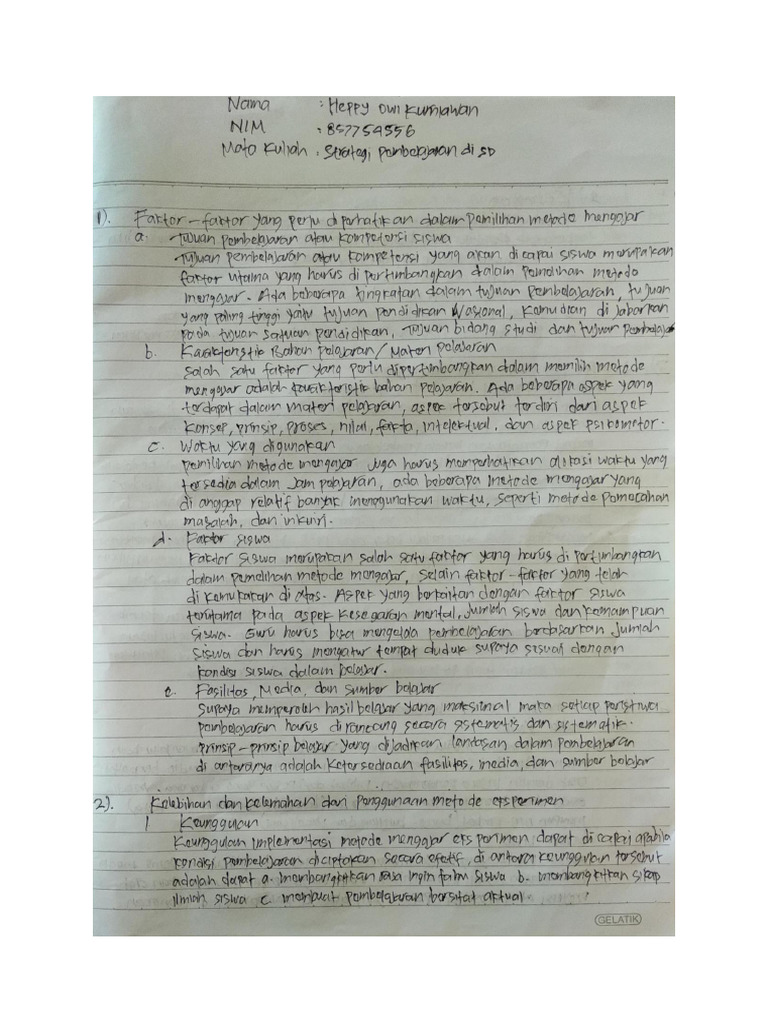 Nama : Heppy Dwi Kurniawan
NIM : 857754556
Mata Kuliah : Strategi Pembelajaran di SD
1). Faktor-faktor yang perlu diperhatikan dalam pemilihan metode mengajar
a. Tujuan pembelajaran atau kompetensi siswa
Tujuan pembelajaran atau kompetensi yang akan dicapai siswa merupakan
faktor utama yang harus di pertimbangkan dalam pemelihan metode
mengajar. Ada beberapa tingkatan dalam tujuan pembelajaran, tujuan
yang paling tinggi yaitu tujuan pendidikan Nasional, kemudian di Jabarkan
pada tujuan satuan pendidikan, Tujuan bidang studi dan tujuan Pembelajar
b. Karakteristik Bahan pelajaran / Materi pelajaran
Salah satu faktor yang perlu dipertimbangkan dalam memilih metode
mengajar adalah karakteristik bahan pelajaran. Ada beberapa aspek yang
terdapat dalam materi pelajaran, aspek tersebut terdiri dari aspek
konsep, prinsip, proses, nilai, fakta, intelektual, dan aspek psikomotor.
c. Waktu yang digunakan
pemilihan metode mengajar Juga harus memperhatikan alokasi waktu yang
tersedia dalam Jam pelajaran, ada beberapa metode mengajar yang
di anggap relatif banyak menggunakan waktu, seperti metode pemecahan
masalah, dan inkuiri.
d. Faktor siswa
Faktor siswa merupakan salah satu faktor yang harus di pertimbangkan
dalam pemelihan metode mengajar, selain faktor-faktor yang telah
di kemukakan di atas. Aspek yang berkaitan dengan faktor siswa
terutama pada aspek kesegaran mental, Jumlah siswa dan kemampuan
siswa. Guru harus bisa mengelola pembelajaran berdasarkan Jumlah
siswa dan harus mengatur tempat duduk supaya sesuai dengan
kondisi siswa dalam belajar.
e. Fasilitas, Media, dan sumber belajar
Supaya memperoleh hasil belajar yang maksimal maka setiap peristiwa
pembelajaran harus dirancang secara sistematis dan sistematik.
prinsip-prinsip belajar yang dijadikan landasan dalam pembelajaran
di antaranya adalah ketersediaan fasilitas, media, dan sumber belajar
2). Kelebihan dan kelemahan dari penggunaan metode eksperimen
1 Keunggulan
Keunggulan implementasi metode mengajar eksperimen dapat di capai apabila
kondisi pembelajaran diciptakan secara efetif, di antara keunggulan tersebut
adalah dapat a. membangkitkan rasa ingin tahu siswa b. membangkitkan sikap
ilmiah siswa c membuat pembelajaran bersifat aktual
GELATIK